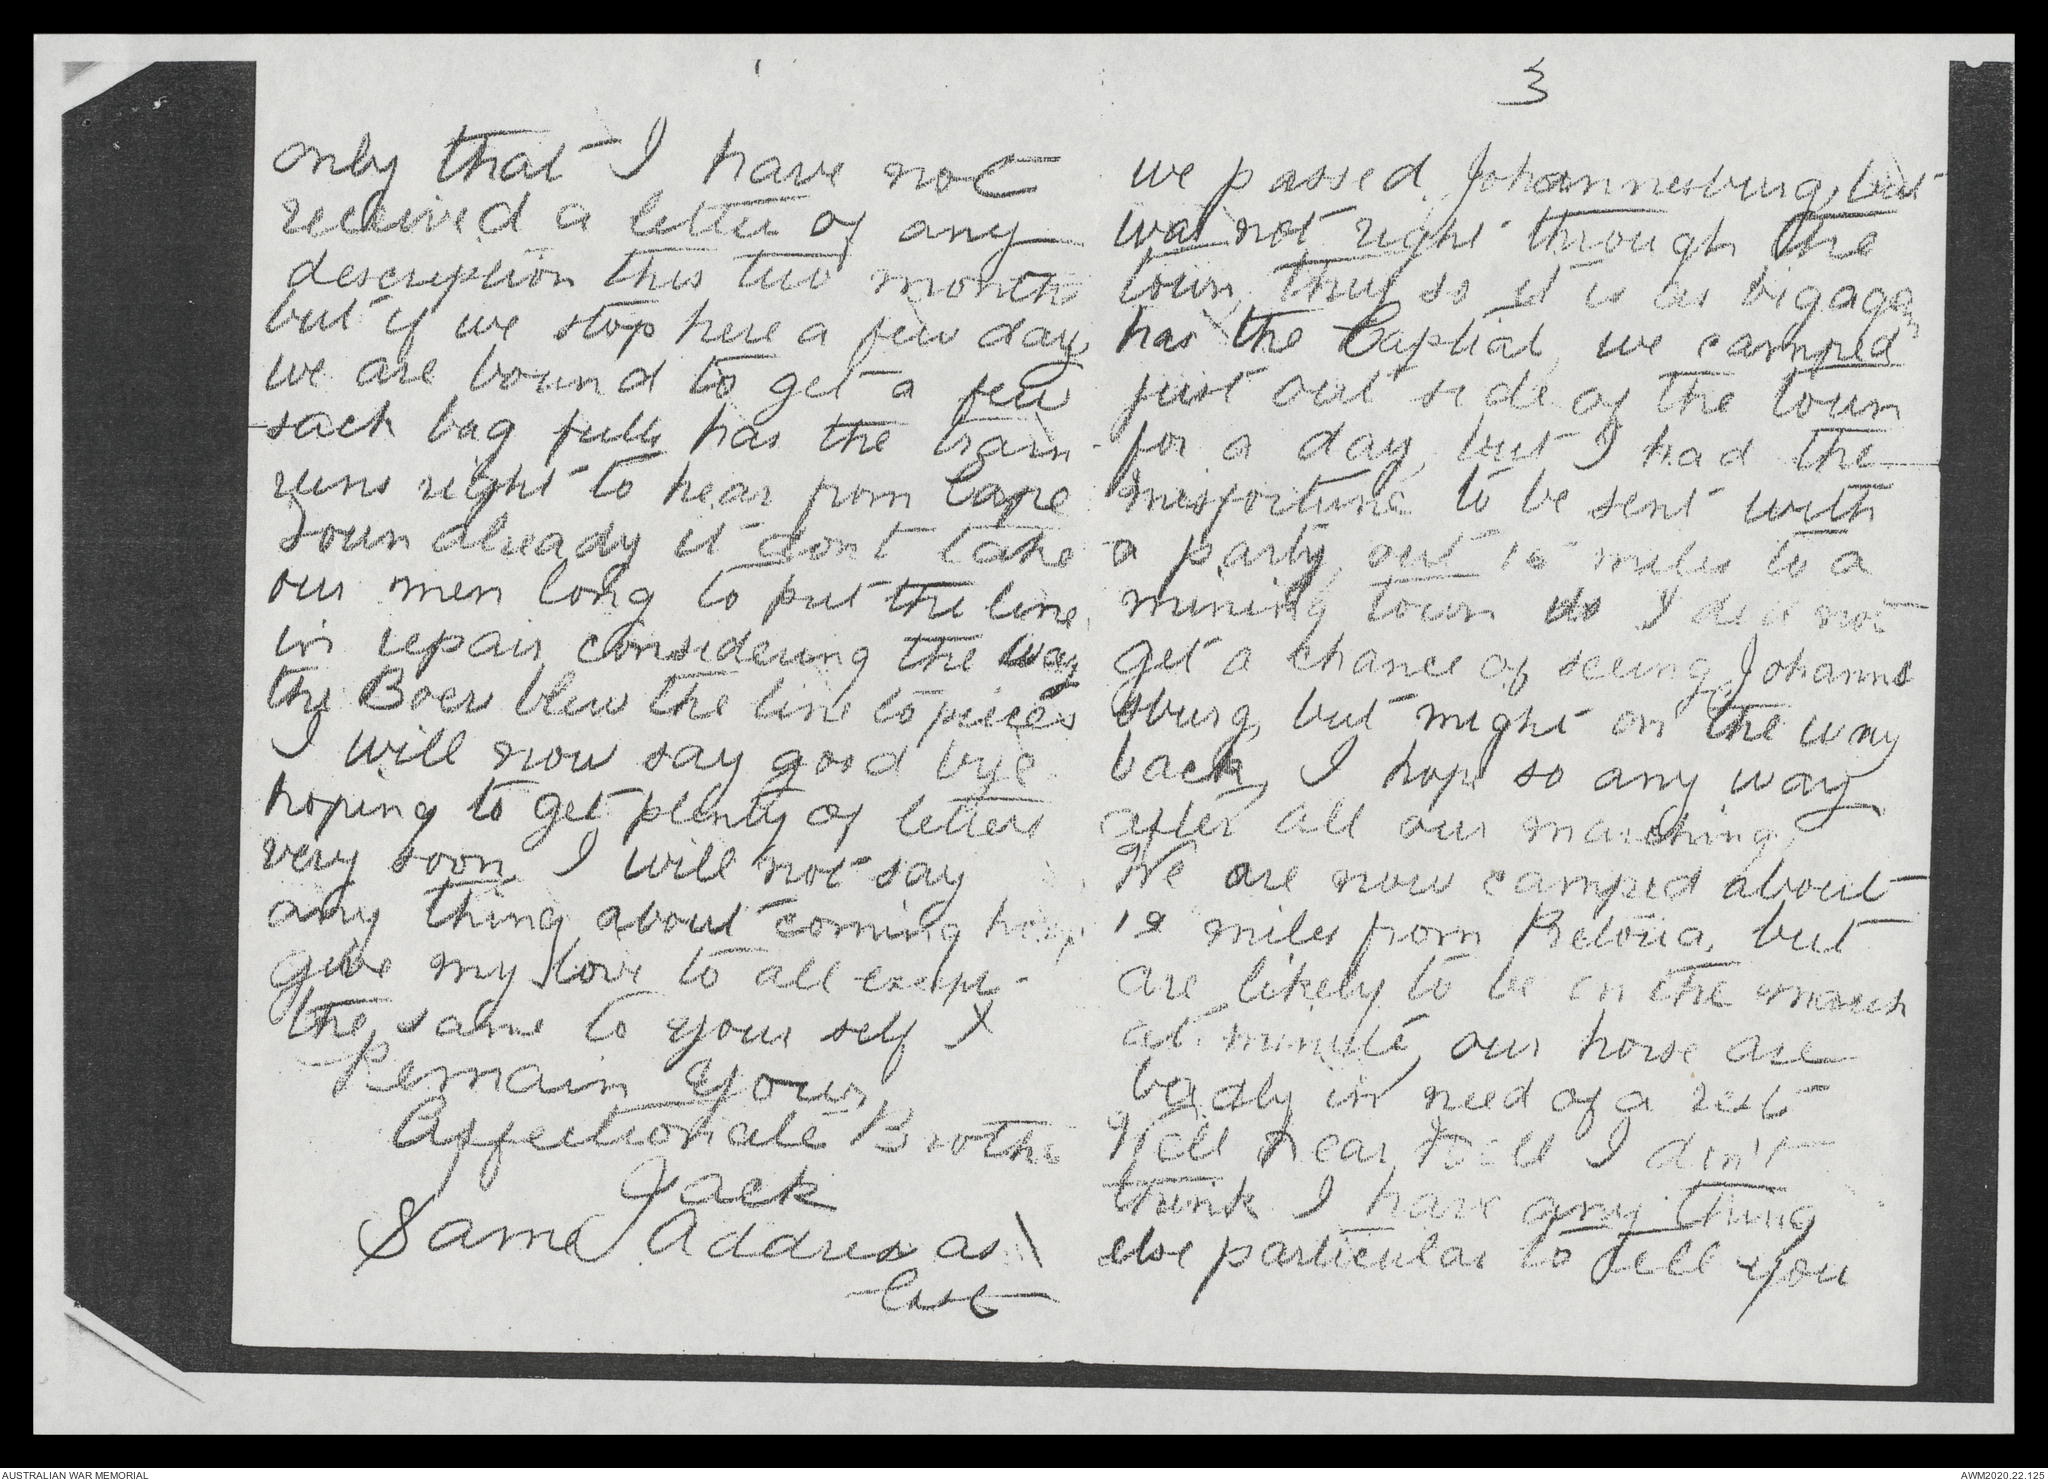 3
we passed Johannesburg, but
was not right through the
town, they so it is as big again
has the Captial, we camped
just out side of the town
for a day, but I had the
misfortune to be sent with
a party out 15 miles to a
mining town so I did not
get a chance of seeing Johanne
sburg, but might on the way
back, I hope so any way
after all our marching,
We are now camped about
12 miles from Pretoria, but
are likely to be on the march
at minute, our horse are
badly in need of a rest
Well dear I don't
think I have any thing
else particular to tell you
only that I have not
received a letter of any
description this two months
but if we stop here a few days
we are bound to get a few
sack bag fulls has the train
runs right to hear from Cape
Town already it dont take
our men long to put the line
in repair, considering the way
the Boers blew the line to pieces
I will now say good bye
hoping to get plenty of letters
very soon, I will not say
any thing about coming home
give my love to all except
the same to your self I
Remain Your
Affectionate Brother
Jack
Same Address as
last
AUSTRALIAN WAR MEMORIAL
AWM2020.22.125